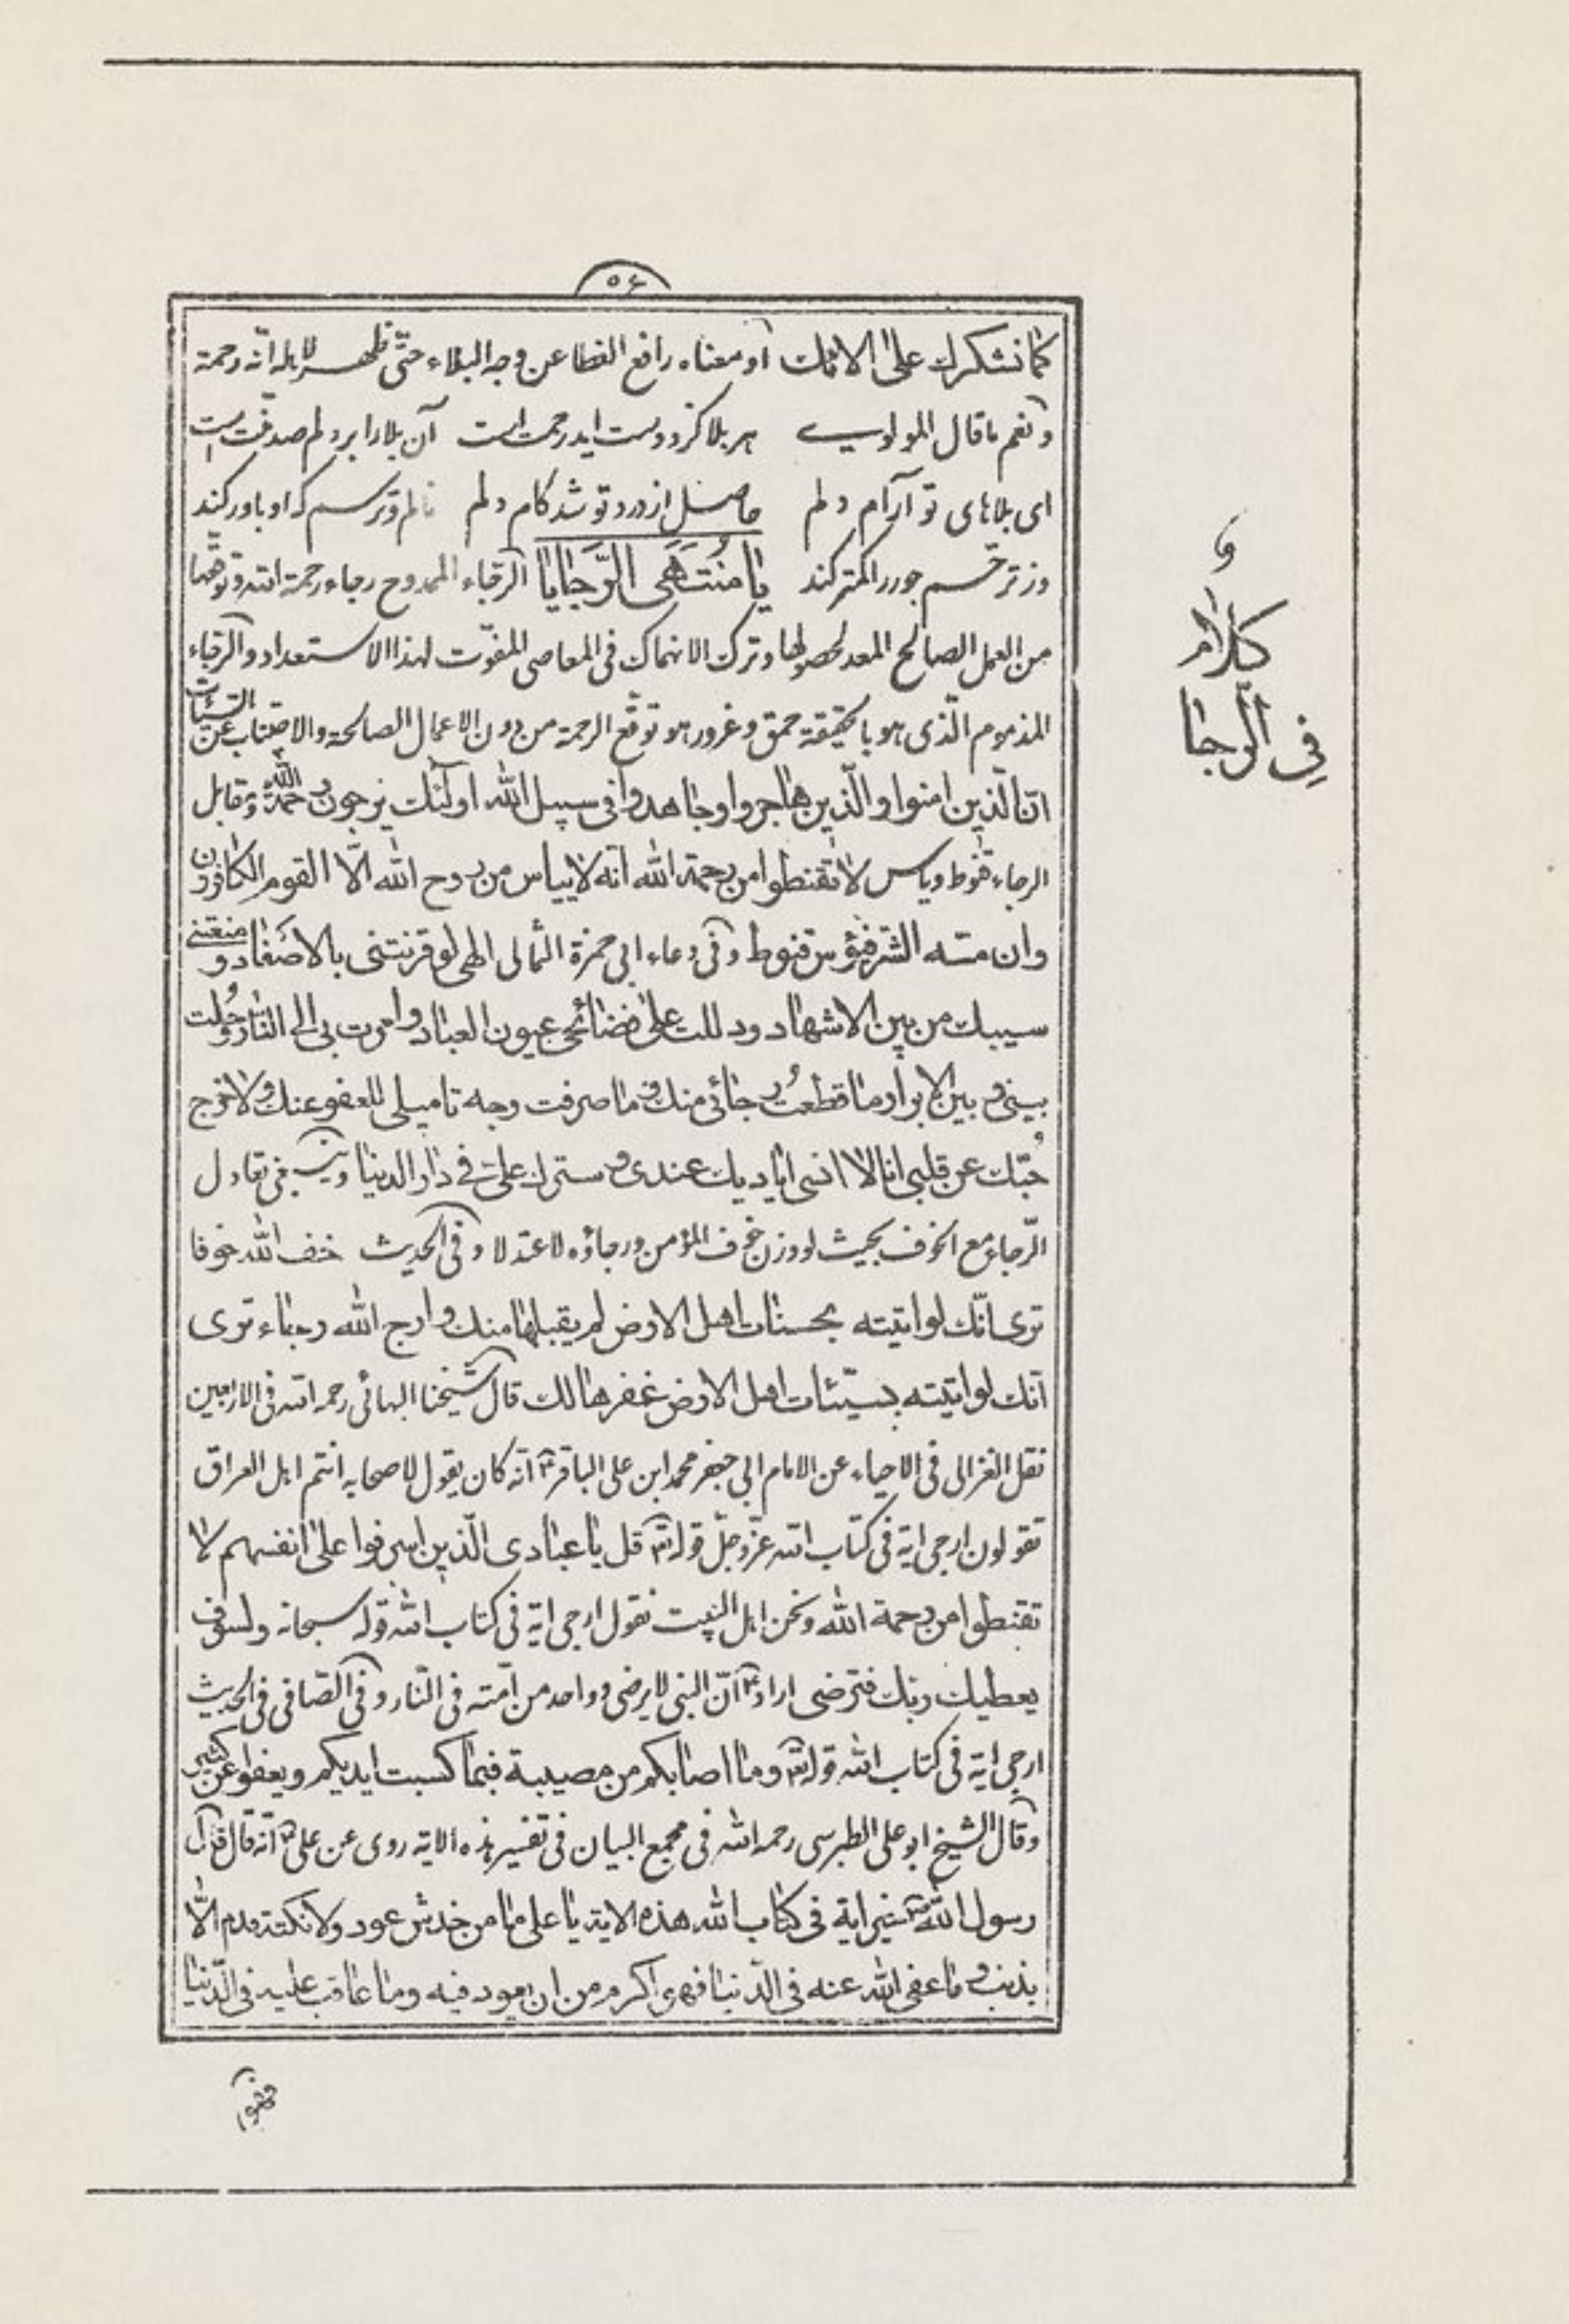 ٥٤
كما نشكرك على الائك او معناه رافع الغطا عن وجه البلاء حتى ظهر لاهله انه رحمة
و نعم ما قال المولوي هر بلا كز دوست ايد رحمت است آن بلا را بر دلم صد منت است
اى بلاهاى تو آرام دلم حاصل از درد تو شد كام دلم نالم و ترسم كه او باور كند
وز ترحم جور را كمتر كند يا منتهى الرجايا الرجاء الممدوح رجاء رحمة الله و توقعها
من العمل الصالح المعد لحصولها و ترك الانهماك فى المعاصى المفوت لهذا الاستعداد و الرجاء
المذموم الذى هو بالحقيقة حمق و غرور هو توقع الرحمة من دون الاعمال الصالحة والاجتناب عن السيئات
ان الذين امنوا و الذين هاجروا و جاهدوا فى سبيل الله اولئك يرجون رحمة الله و مقابل
الرجاء قنوط و ياس لا تقنطوا من رحمة الله انه لا ييأس من روح الله الا القوم الكافرون
وان مسه الشر فيؤس قنوط و فى دعاء ابى حمزة الثمالى الهى لو قرنتنى بالاصفاد و منعتنى
سيبك من بين الاشهاد و دللت على فضائحى عيون العباد و امرت بى الى النار و حلت
بينى و بين الابرار ما قطعت رجائى منك و ما صرفت وجه تاميلى للعفو عنك و لا خرج
حبك عن قلبى انا لا انسى اياديك عندى و سترك على فى دار الدنيا و ينبغى تعادل
الرجاء مع الخوف بحيث لو وزن خوف المؤمن و رجاؤه لاعتدلا و فى الحديث خف الله خوفا
ترى انك لو اتيته بحسنات اهل الارض لم يقبلها منك و ارج الله رجاء ترى
انك لو اتيته بسيئات اهل الارض غفرها لك قال شيخنا البهائى رحمه الله فى الاربعين
نقل الغزالى فى الاحياء عن الامام ابى جعفر محمد ابن على الباقر ع انه كان يقول لاصحابه انتم اهل العراق
تقولون ارجى اية فى كتاب الله عز وجل قوله تعالى قل يا عبادى الذين اسرفوا على انفسهم لا
تقنطوا من رحمة الله و نحن اهل البيت نقول ارجى اية فى كتاب الله قوله سبحانه ولسوف
يعطيك ربك فترضى اراد ع ان النبى لا يرضى و واحد من امته فى النار و فى الصافى فى الحديث
ارجى اية فى كتاب الله قوله تعالى و ما اصابكم من مصيبة فبما كسبت ايديكم و يعفوا عن كثير
و قال الشيخ ابو على الطبرسى رحمه الله فى مجمع البيان فى تفسير هذه الاية روى عن على ع انه قال قال
رسول الله ص خير اية فى كتاب الله هذه الاية يا على ما من خدش عود و لا نكتة قدم الا
بذنب و ما عفى الله عنه فى الدنيا فهو اكرم من ان يعود فيه و ما عاقب عليه فى الدنيا
فهو
و
كلام
فى الرجا